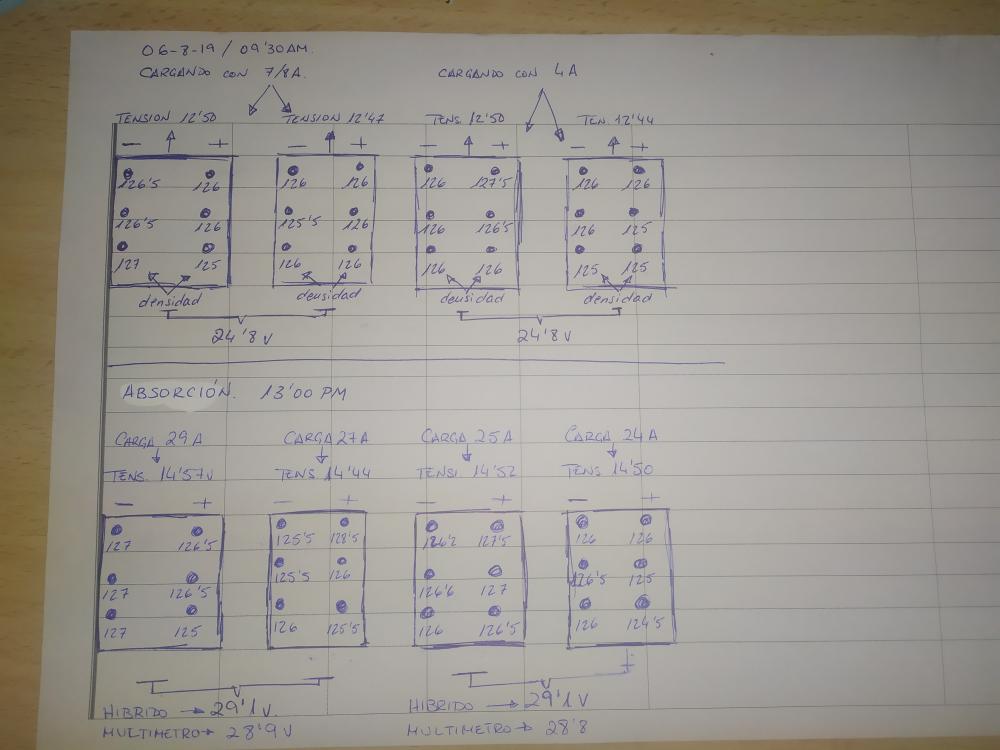 06-8-19 / 09'30AM.
CARGANDO CON 7/8A. CARGANDO CON 4A
TENSION 12'50 TENSION 12'47 TENS. 12'50 TEN. 12'44
- + - + - + - +
126'5 126 126 126 126 127'5 126 126
126'5 126 125'5 126 126 126'5 126 125
127 125 126 126 126 126 125 125
densidad densidad densidad densidad
24'8 V 24'8 V
ABSORCIÓN. 13'00 PM
CARGA 29A CARGA 27A CARGA 25A CARGA 24A
TENS. 14'57V TENS 14'44 TENS. 14'52 TENS. 14'50
- + - + - + - +
127 126'5 125'5 128'5 126'2 127'5 126 126
127 126'5 125'5 126 126'6 127 126'5 125
127 125 126 125'5 126 126'5 126 124'5
HIBRIDO → 29'1 V. HIBRIDO → 29'1 V
MULTIMETRO → 28'9 V MULTIMETRO → 28'8